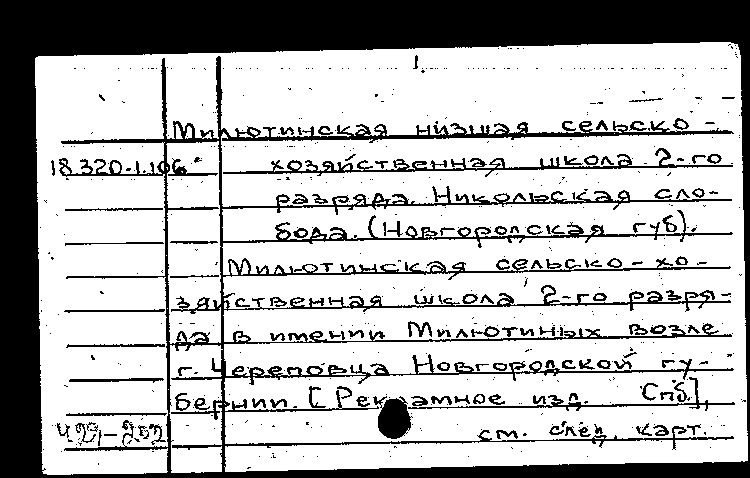 1.
Милютинская низшая сельско-
18.320-1.106 хозяйственная школа 2-го
разряда. Никольская сло-
бода. (Новгородская губ).
Милютинская сельско-хо-
зяйственная школа 2-го разря-
да в имении Милютиных возле
г. Череповца Новгородской гу-
бернии. [Рекламное изд. Спб],
см. след. карт.